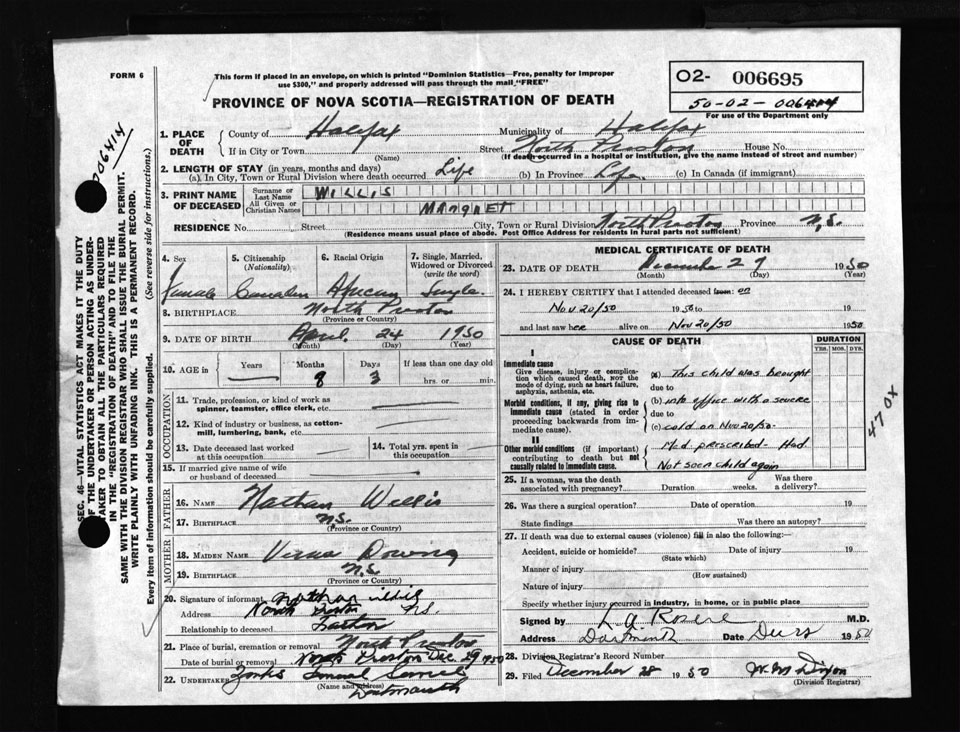 FORM 6
This form if placed in an envelope, on which is printed "Dominion Statistics—Free, penalty for improper
use $300," and properly addressed will pass through the mail "FREE"
O2- 006695
50-02-006414
For use of the Department only
PROVINCE OF NOVA SCOTIA—REGISTRATION OF DEATH
006414
1. PLACE OF DEATH
County of Halifax Municipality of Halifax
If in City or Town (Name) Street North Preston House No.
(If death occurred in a hospital or institution, give the name instead of street and number)
2. LENGTH OF STAY (in years, months and days)
(a). In City, Town or Rural Division where death occurred Life (b) In Province Life (c) In Canada (if immigrant)
3. PRINT NAME OF DECEASED
Surname or Last Name WILLIS
All Given or Christian Names MARGRET
RESIDENCE No. Street City, Town or Rural Division North Preston Province N.S.
(Residence means usual place of abode. Post Office Address for residents in rural parts not sufficient)
4. Sex Female
5. Citizenship (Nationality) Canadien
6. Racial Origin African
7. Single, Married, Widowed or Divorced (write the word) Single
8. BIRTHPLACE North Preston
(Province or Country)
9. DATE OF BIRTH April 24 1950
(Month) (Day) (Year)
10. AGE in Years Months 8 Days 3 If less than one day old hrs. or min.
OCCUPATION
11. Trade, profession or kind of work as spinner, teamster, office clerk, etc.
12. Kind of industry or business, as cotton-mill, lumbering, bank, etc.
13. Date deceased last worked at this occupation
14. Total yrs. spent in this occupation
15. If married give name of wife or husband of deceased
FATHER
16. NAME Nathan Willis
17. BIRTHPLACE N.S.
(Province or Country)
MOTHER
18. MAIDEN NAME Downg
19. BIRTHPLACE N.S.
(Province or Country)
20. Signature of informant Nathan Willis
Address North Preston N.S.
Relationship to deceased
21. Place of burial, cremation or removal North Preston
Date of burial or removal North Preston Dec. 29 1950
22. UNDERTAKER Funeral Service
(Name and address) Dartmouth
MEDICAL CERTIFICATE OF DEATH
23. DATE OF DEATH December 27 1950
(Month) (Day) (Year)
24. I HEREBY CERTIFY that I attended deceased from: on
Nov 20/50 1950 to 19
and last saw her alive on Nov 20/50 1950
CAUSE OF DEATH
DURATION
YRS. MOS. DYS.
I
Immediate cause
Give disease, injury or complication which caused death, NOT the mode of dying, such as heart failure, asphyxia, asthenia, etc.
(a) This child was brought
due to
Morbid conditions, if any, giving rise to immediate cause (stated in order proceeding backwards from immediate cause).
(b) into office with a severe
due to
(c) cold on Nov 20/50-
II
Other morbid conditions (if important) contributing to death but not causally related to immediate cause.
Med. prescribed- Had
Not seen child again
470X
25. If a woman, was the death associated with pregnancy? Duration weeks. Was there a delivery?
26. Was there a surgical operation? Date of operation 19
State findings Was there an autopsy?
27. If death was due to external causes (violence) fill in also the following:—
Accident, suicide or homicide? Date of injury 19
(State which)
Manner of injury
(How sustained)
Nature of injury
Specify whether injury occurred in industry, in home, or in public place
Signed by M.D.
Address Dartmouth Date 1950
28. Division Registrar's Record Number
29. Filed December 28 1950 W. M. Dixon
(Division Registrar)
SEC. 46—VITAL STATISTICS ACT MAKES IT THE DUTY
OF THE UNDERTAKER OR PERSON ACTING AS UNDER-
TAKER TO OBTAIN ALL THE PARTICULARS REQUIRED
IN THE "REGISTRATION OF DEATH" AND TO FILE THE
SAME WITH THE DIVISION REGISTRAR WHO SHALL ISSUE THE BURIAL PERMIT.
WRITE PLAINLY WITH UNFADING INK. THIS IS A PERMANENT RECORD.
Every item of information should be carefully supplied. (See reverse side for instructions.)